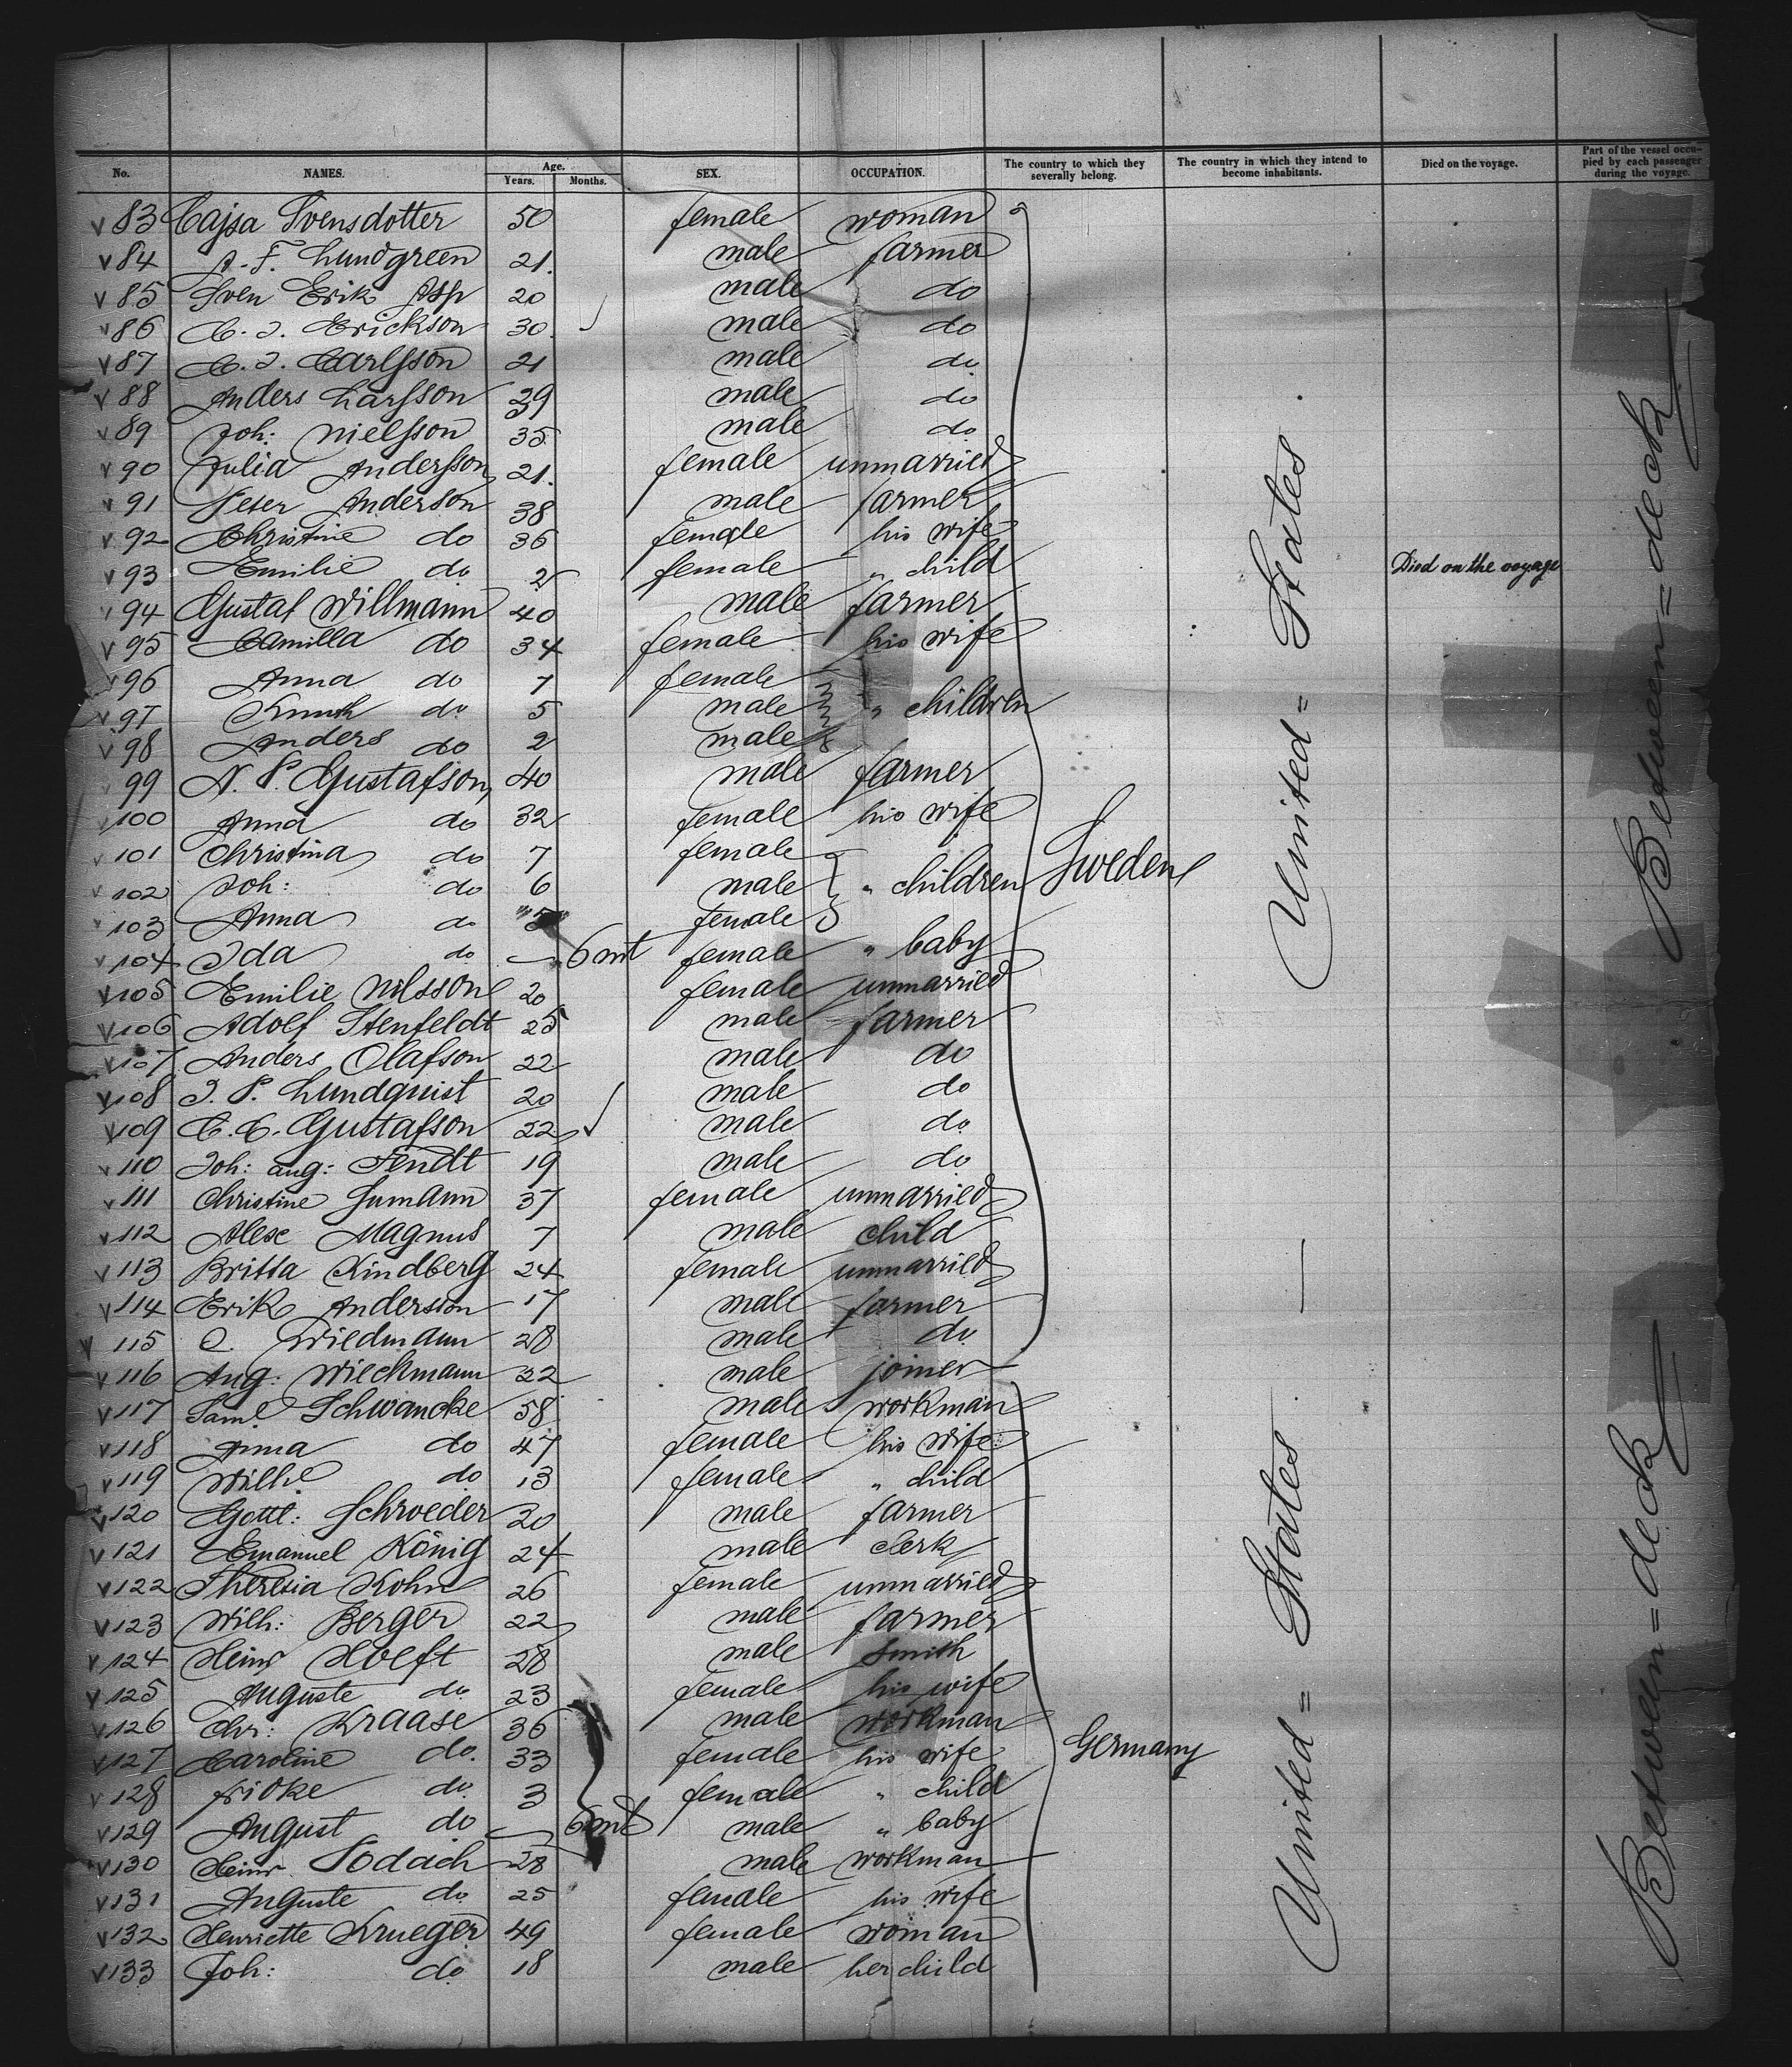 No. NAMES. Age. Years. Months. SEX. OCCUPATION. The country to which they severally belong. The country in which they intend to become inhabitants. Died on the voyage. Part of the vessel occupied by each passenger during the voyage.
83 Cajsa Svensdotter 50 female woman
84 A. F. Lundgreen 21. male farmer
85 Sven Erik Asp 20 male do
86 C. J. Erickson 30 male do
87 C. J. Carlsson 21 male do
88 Anders Larsson 39 male do
89 Joh: Nielsson 35 male do
90 Julia Andersson 21. female unmarried
91 Peter Anderson 38 male farmer
92 Christine do 36 female his wife
93 Emilie do 2 female " child Died on the voyage
94 Gustaf Willmann 40 male farmer
95 Camilla do 34 female his wife
96 Anna do 7 female
97 Knuth do 5 male " children
98 Anders do 2 male
99 N. P. Gustafson 40 male farmer
100 Anna do 32 female his wife
101 Christina do 7 female
102 Joh: do 6 male " children Sweden
103 Anna do female
104 Ida do 6 mt female " baby
105 Emilie Nilsson 20 female unmarried
106 Adolf Stenfeldt 25 male farmer
107 Anders Olafson 22 male do
108 J. P. Lundquist 20 male do
109 C. C. Gustafson 22 male do
110 Joh: aug: Fendt 19 male do
111 Christine Sumann 37 female unmarried
112 Alexe Magnus 7 male child
113 Britta Kindberg 24 female unmarried
114 Erik Anderson 17 male farmer
115 C. Wiedmann 28 male do
116 Aug: Wieckmann 22 male joiner
117 Saml Schwancke 58 male workman
118 Anna do 47 female his wife
119 Wilhe do 13 female " child
120 Gottl: Schroeder 20 male farmer
121 Emanuel König 24 male clerk
122 Theresia Kohn 26 female unmarried
123 Wilh: Berger 22 male farmer
124 Heinr Hoeft 28 male smith
125 Auguste do 23 female his wife
126 Chr: Kraase 36 male workman
127 Caroline do. 33 female his wife Germany
128 Fridke do 3 female " child
129 August do 6 mt male " baby
130 Heinr Podach 28 male workman
131 Auguste do 25 female his wife
132 Henriette Krueger 49 female woman
133 Joh: do 18 male her child
United = States
United = States
Between = deck
Between = deck